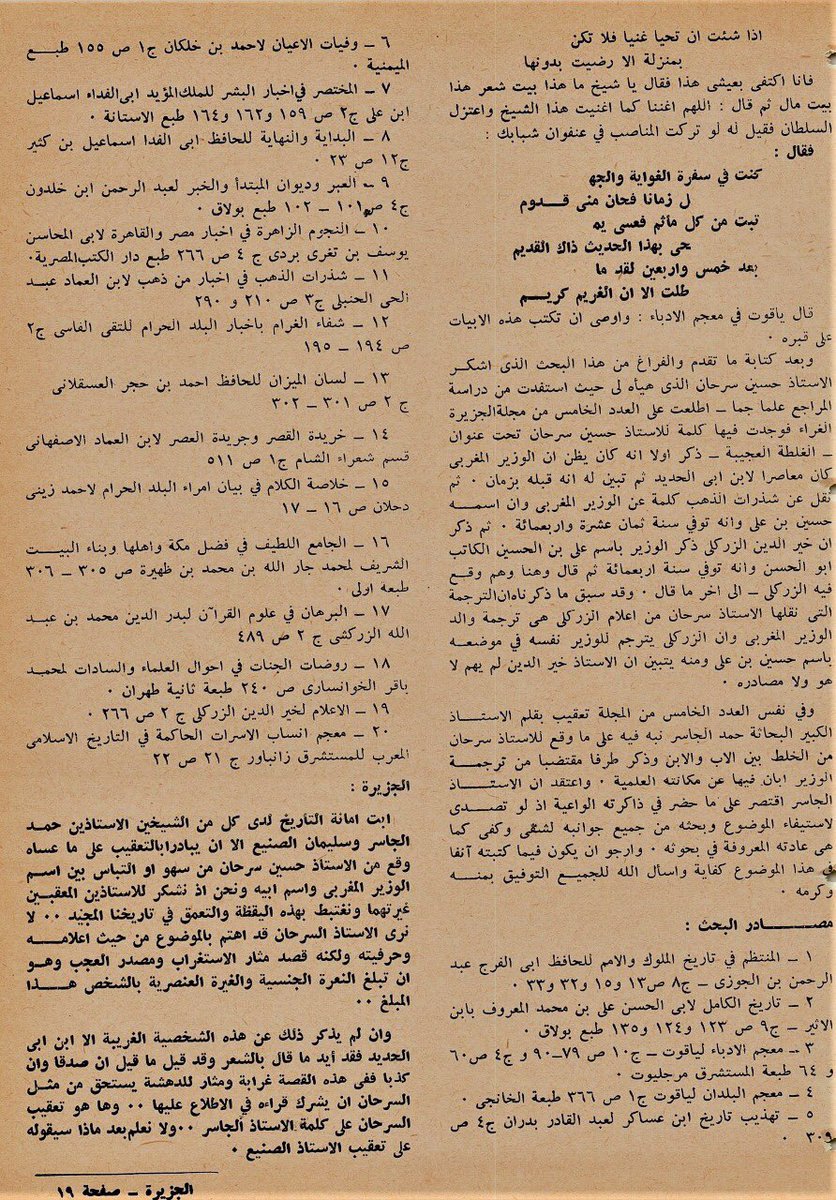 اذا شئت ان تحيا غنيا فلا تكن
بمنزلة الا رضيت بدونها
فانا اكتفى بعيشى هذا فقال يا شيخ ما هذا بيت شعر هذا
بيت مال ثم قال : اللهم اغننا كما اغنيت هذا الشيخ واعتزل
السلطان فقيل له لو تركت المناصب في عنفوان شبابك :
فقال :
كنت في سفرة الغواية والجه
ل زمانا فحان منى قــدوم
تبت من كل مأثم فعسى يم
حى بهذا الحديث ذاك القديم
بعد خمس واربعين لقد ما
طلت الا ان الغريم كريــم
قال ياقوت في معجم الادباء : واوصى ان تكتب هذه الابيات
على قبره ٠
وبعد كتابة ما تقدم والفراغ من هذا البحث الذى اشكــر
الاستاذ حسين سرحان الذى هيأه لى حيث استفدت من دراسة
المراجع علما جما ــ اطلعت على العدد الخامس من مجلة الجزيرة
الغراء فوجدت فيها كلمة للاستاذ حسين سرحان تحت عنوان
ــ الغلطة العجيبة ــ ذكر اولا انه كان يظن ان الوزير المغربى
كان معاصرا لابن ابى الحديد ثم تبين له انه قبله بزمان ٠ ثم
نقل عن شذرات الذهب كلمة عن الوزير المغربى وان اسمــه
حسين بن على وانه توفي سنة ثمان عشرة واربعمائة ٠ ثم ذكر
ان خير الدين الزركلى ذكر الوزير باسم على بن الحسين الكاتب
ابو الحسن وانه توفي سنة اربعمائة ثم قال وهنا وهم وقــع
فيه الزركلى ــ الى اخر ما قال ٠ وقد سبق ما ذكرناه ان الترجمة
التى نقلها الاستاذ سرحان من اعلام الزركلى هى ترجمة والد
الوزير المغربى وان الزركلى يترجم للوزير نفسه في موضعــه
باسم حسين بن على ومنه يتبين ان الاستاذ خير الدين لم يهم لا
هو ولا مصادره ٠
وفي نفس العدد الخامس من المجلة تعقيب بقلم الاستــاذ
الكبير البحاثة حمد الجاسر نبه فيه على ما وقع للاستاذ سرحان
من الخلط بين الاب والابن وذكر طرفا مقتضبا من ترجمــة
الوزير ابان فيها عن مكانته العلمية ٠ واعتقد ان الاستــاذ
الجاسر اقتصر على ما حضر في ذاكرته الواعية اذ لو تصــدى
لاستيفاء الموضوع وبحثه من جميع جوانبه لشفى وكفى كما
هى عادته المعروفة في بحوثه ٠ وارجو ان يكون فيما كتبته آنفا
في هذا الموضوع كفاية واسأل الله للجميع التوفيق بمنــه
وكرمه ٠
مصــــادر البحث :
١ ــ المنتظم في تاريخ الملوك والامم للحافظ ابى الفرج عبد
الرحمن بن الجوزى ــ ج٨ ص١٣ و١٥ و٣٢ و٣٣ ٠
٢ ــ تاريخ الكامل لابى الحسن على بن محمد المعروف بابن
الاثير ــ ج٩ ص ١٢٣ و١٢٤ و١٣٥ طبع بولاق ٠
٣ ــ معجم الادباء لياقوت ــ ج١٠ ص ٧٩ــ٩٠ و ج٤ ص٦٠
و ٦٤ طبعة المستشرق مرجليوت ٠
٤ ــ معجم البلدان لياقوت ج١ ص ٣٦٦ طبعة الخانجى ٠
٥ ــ تهذيب تاريخ ابن عساكر لعبد القادر بدران ج٤ ص
٣٠٩ ٠
٦ ــ وفيات الاعيان لاحمد بن خلكان ج١ ص ١٥٥ طبــع
الميمنية ٠
٧ ــ المختصر في اخبار البشر للملك المؤيد ابى الفداء اسماعيل
ابن على ج٢ ص ١٥٩ و١٦٢ و١٦٤ طبع الاستانة ٠
٨ ــ البداية والنهاية للحافظ ابى الفدا اسماعيل بن كثير
ج١٢ ص ٢٣ ٠
٩ ــ العبر وديوان المبتدأ والخبر لعبد الرحمن ابن خلدون
ج٤ ص١٠١ ــ ١٠٢ طبع بولاق ٠
١٠ ــ النجوم الزاهرة في اخبار مصر والقاهرة لابى المحاسن
يوسف بن تغرى بردى ج ٤ ص ٢٦٦ طبع دار الكتب المصرية٠
١١ ــ شذرات الذهب في اخبار من ذهب لابن العماد عبــد
الحى الحنبلى ج٣ ص ٢١٠ و ٢٩٠
١٢ ــ شفاء الغرام باخبار البلد الحرام للتقى الفاسى ج٢
ص ١٩٤ ــ ١٩٥
١٣ ــ لسان الميزان للحافظ احمد بن حجر العسقلانى
ج ٢ ص ٣٠١ ــ ٣٠٢
١٤ ــ خريدة القصر وجريدة العصر لابن العماد الاصفهانى
قسم شعراء الشام ج١ ص ٥١١
١٥ ــ خلاصة الكلام في بيان امراء البلد الحرام لاحمد زينى
دحلان ص ١٦ ــ ١٧
١٦ ــ الجامع اللطيف في فضل مكة واهلها وبناء البيــت
الشريف لمحمد جار الله بن محمد بن ظهيرة ص ٣٠٥ ــ ٣٠٦
طبعة اولى ٠
١٧ ــ البرهان في علوم القرآن لبدر الدين محمد بن عبــد
الله الزركشى ج ٢ ص ٤٨٩
١٨ ــ روضات الجنات في احوال العلماء والسادات لمحمــد
باقر الخوانسارى ص ٢٤٠ طبعة ثانية طهران ٠
١٩ ــ الاعلام لخير الدين الزركلى ج ٢ ص ٢٦٦ ٠
٢٠ ــ معجم انساب الاسرات الحاكمة في التاريخ الاسلامى
المعرب للمستشرق زانباور ج ٢١ ص ٢٢
الجزيرة :
ابت امانة التأريخ لدى كل من الشيخين الاستاذين حمــد
الجاسر وسليمان الصنيع الا ان يبادرا بالتعقيب على ما عساه
وقع من الاستاذ حسين سرحان من سهو او التباس بين اســم
الوزير المغربى واسم ابيه ونحن اذ نشكر للاستاذين المعقبين
غيرتهما ونغتبط بهذه اليقظة والتعمق في تاريخنا المجيد ٠٠ لا
نرى الاستاذ السرحان قد اهتم بالموضوع من حيث اعلامــه
وحرفيته ولكنه قصد مثار الاستغراب ومصدر العجب وهــو
ان تبلغ النعرة الجنسية والغيرة العنصرية بالشخص هــذا
المبلغ ٠٠
وان لم يذكر ذلك عن هذه الشخصية الغريبة الا ابن ابى
الحديد فقد أيد ما قال بالشعر وقد قيل ما قيل ان صدقا وان
كذبا ففى هذه القصة غرابة ومثار للدهشة يستحق من مثــل
السرحان ان يشرك قراءه في الاطلاع عليها ٠٠ وها هو تعقيب
السرحان على كلمة الاستاذ الجاسر ٠٠ولا نعلم بعد ماذا سيقوله
على تعقيب الاستاذ الصنيع ٠
الجزيرة ــ صفحة ١٩